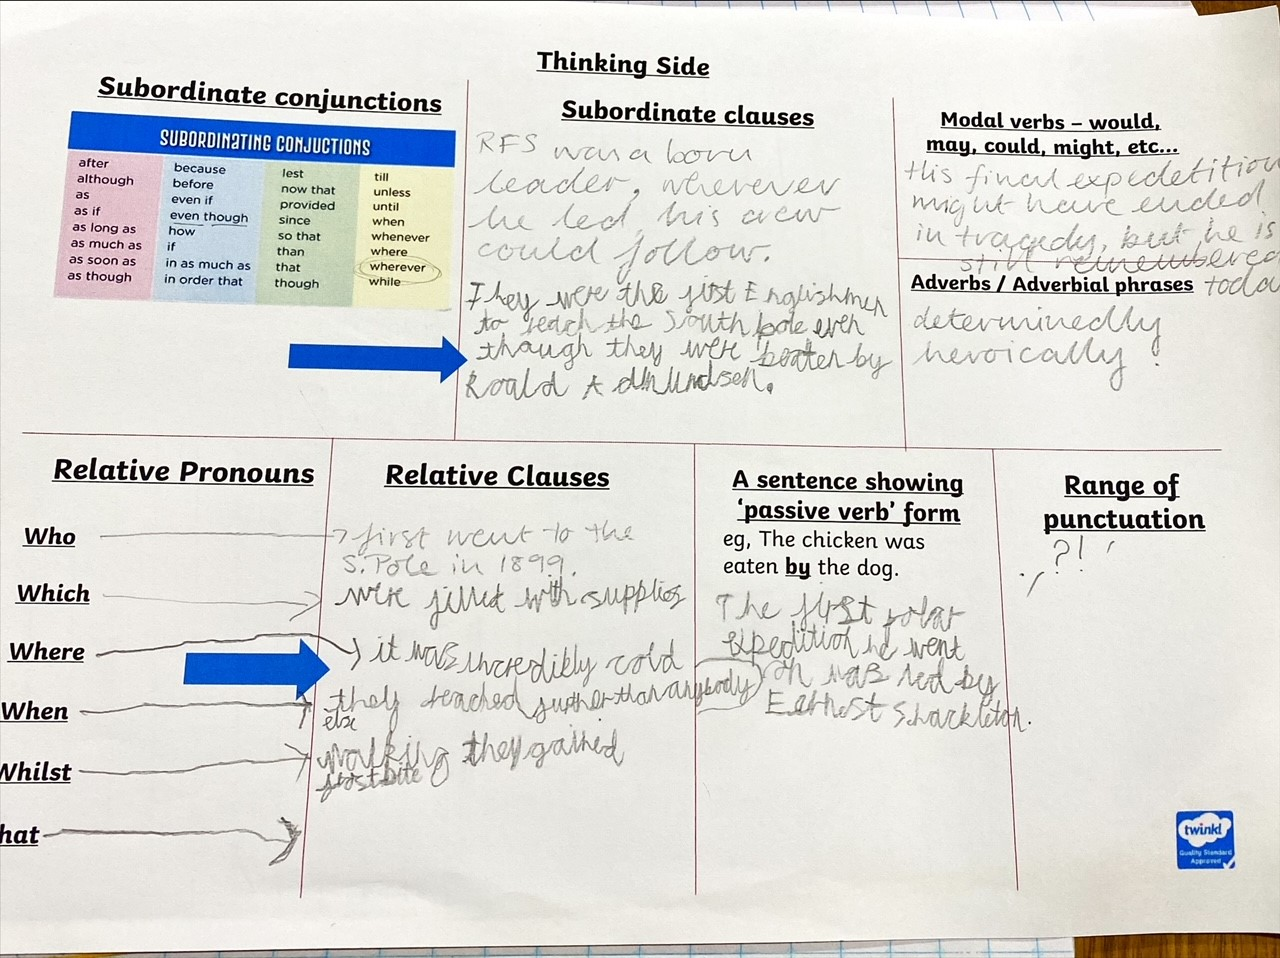 Thinking Side
Subordinate conjunctions
SUBORDINATING CONJUCTIONS
after
although
as
as if
as long as
as much as
as soon as
as though
because
before
even if
even though
how
if
in as much as
in order that
lest
now that
provided
since
so that
than
that
though
till
unless
until
when
whenever
where
wherever
while
Subordinate clauses
RFS was a born
leader, wherever
he led, his crew
could follow.
They were the first Englishmen
to reach the South pole even
though they were beaten by
Roald
Modal verbs – would,
may, could, might, etc...
His final expedetition
might have ended
in tragedy, but he is
still remembered
toda
Adverbs / Adverbial phrases
determinedly
heroically
Relative Pronouns
Who
Which
Where
When
Whilst
hat
Relative Clauses
first went to the
S.Pole in 1899.
were filled with supplies
it was incredibly cold
they reached further than anybody
else
walking they gained
frostbite
A sentence showing
‘passive verb’ form
eg, The chicken was
eaten by the dog.
The first polar
expedition he went
on was led by
Earnest Shackleton.
Range of
punctuation
?!
twinkl
Quality Standard
Approved